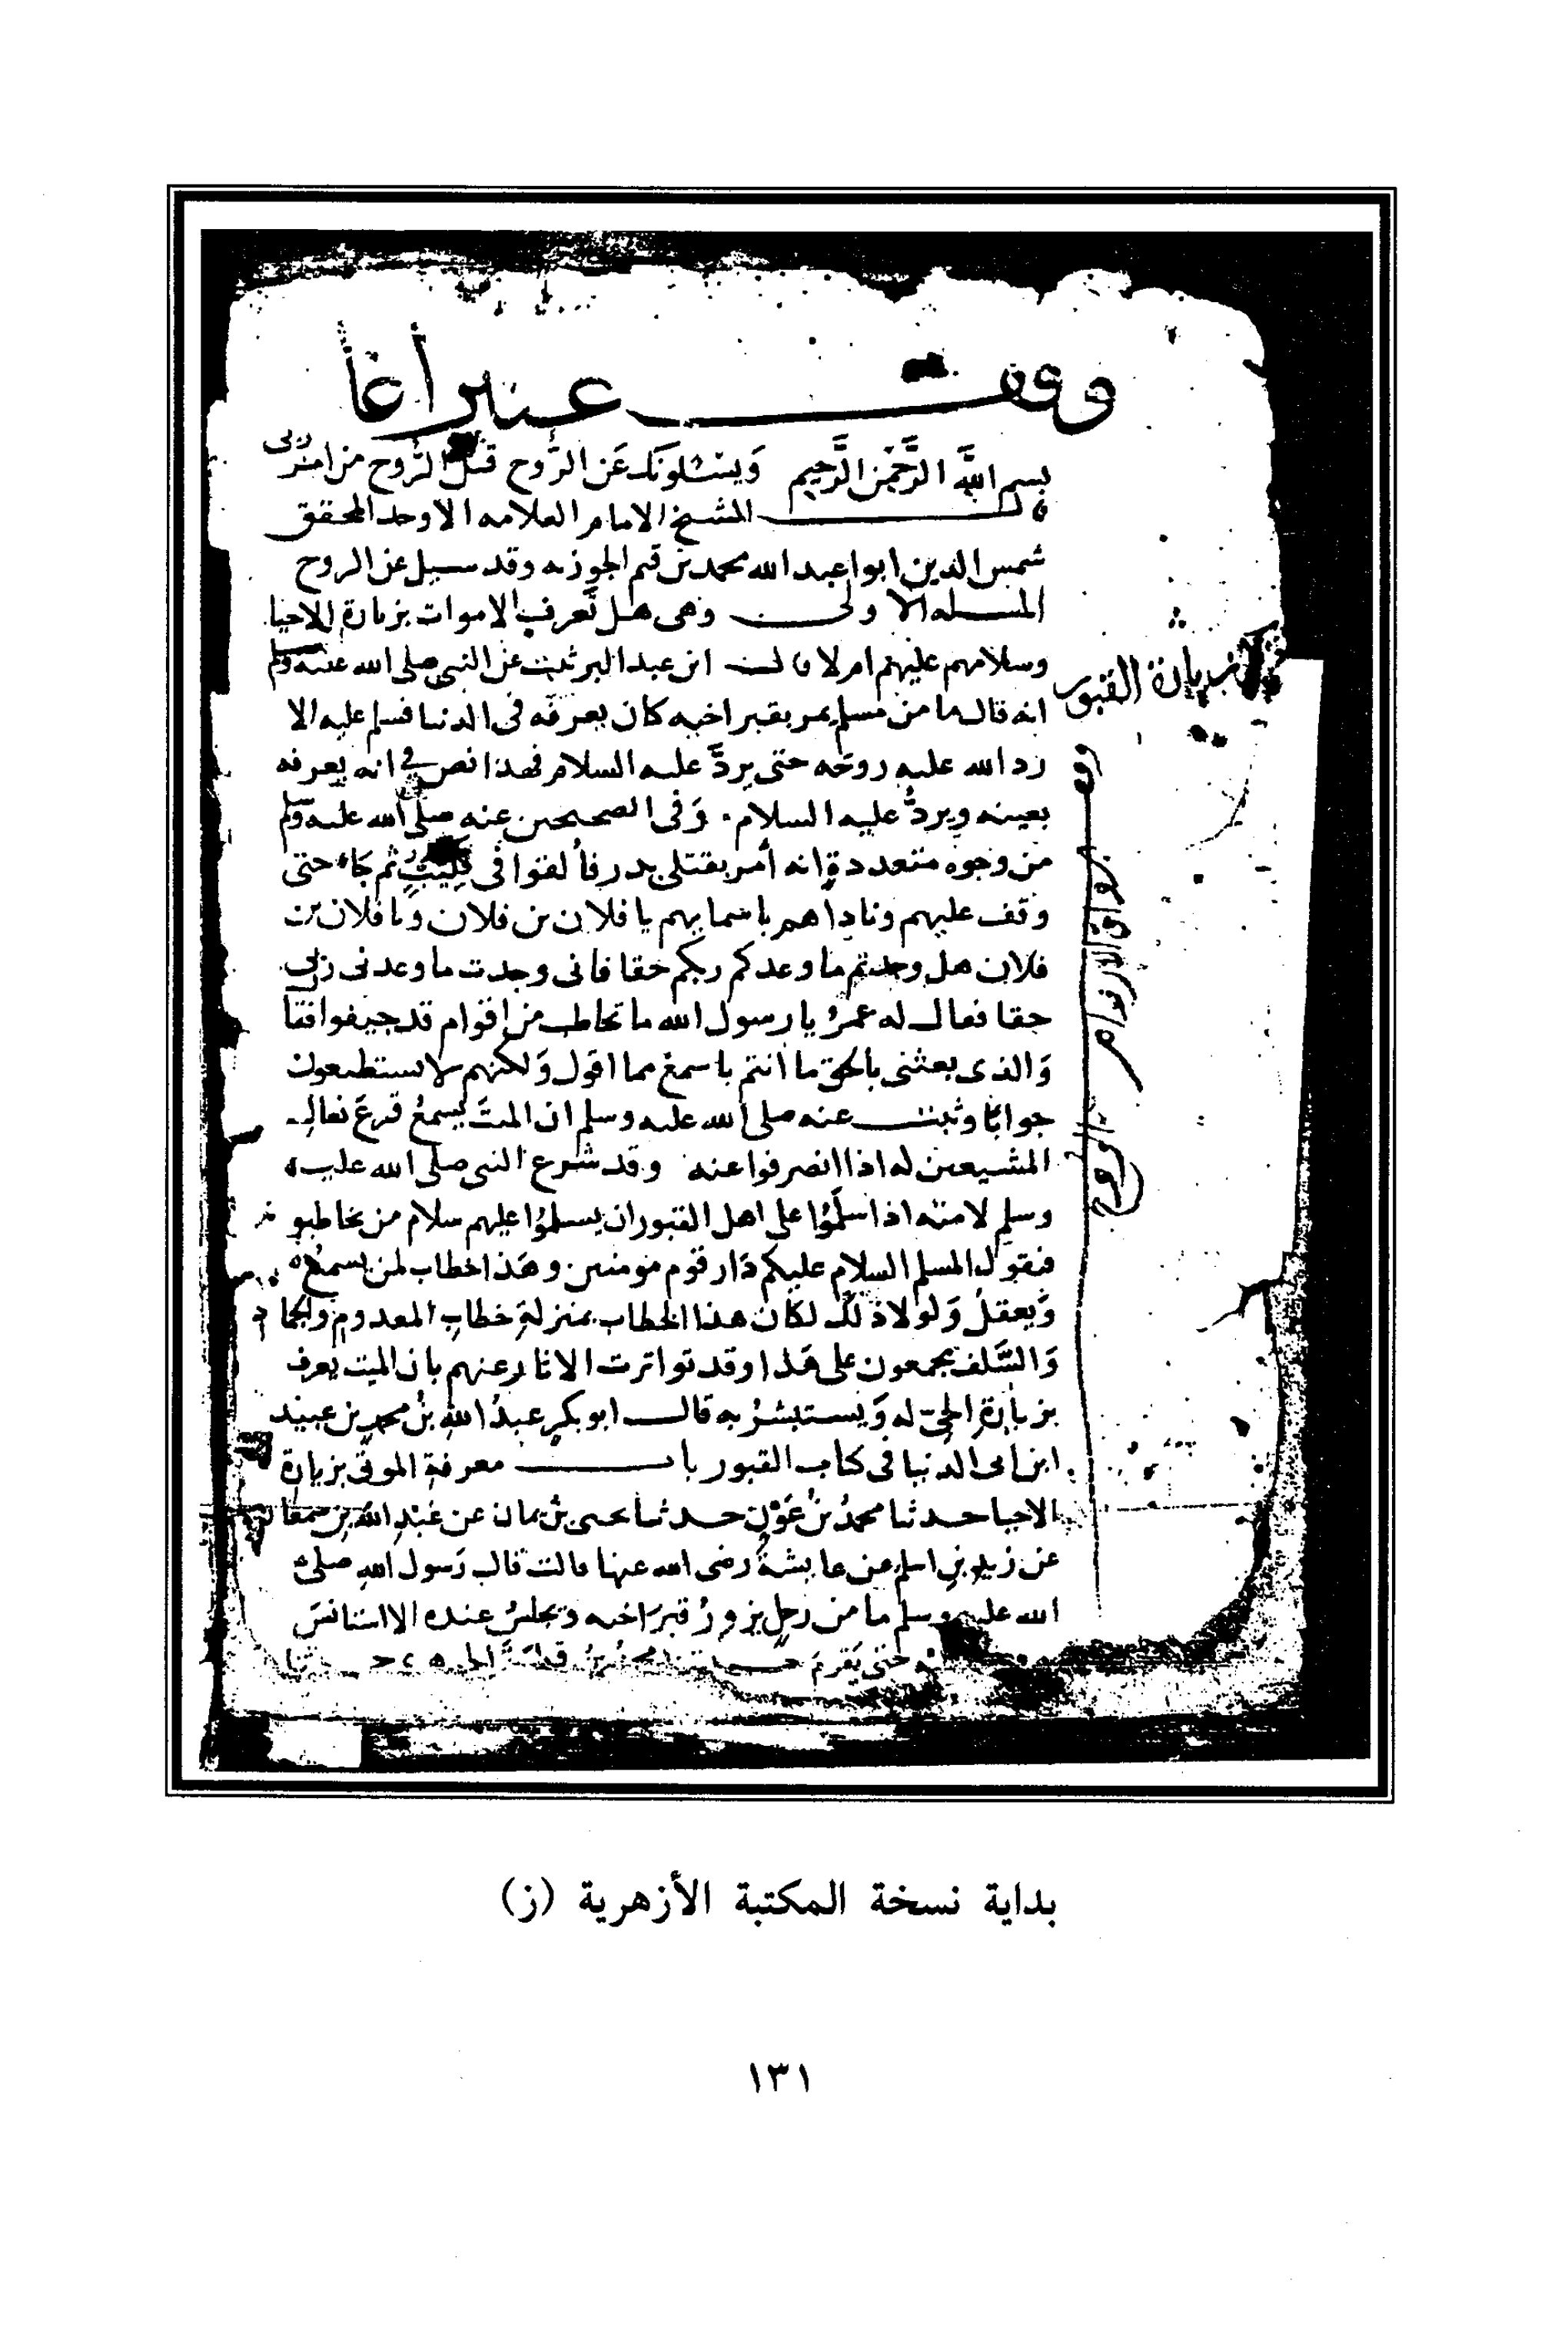 وقف عنبر أغا
بسم الله الرحمن الرحيم ويسئلونك عن الروح قل الروح من امر ربى
قال الشيخ الامام العلامه الاوحد المحقق
شمس الدين ابوا عبد الله محمد بن قيم الجوزيه وقد سيل عن الروح
المسله الاولى وهى هل تعرف الاموات بزيارة الاحيا
وسلامهم عليهم ام لا قال ابن عبد البر ثبت عن النبى صلى الله عليه وسلم
انه قال ما من مسلم يمر بقبر اخيه كان يعرفه فى الدنيا فسلم عليه الا
رد الله عليه روحه حتى يردَّ عليه السلام فهذا نص في انه يعرفه
بعينه ويردُّ عليه السلام وفى الصحيحين عنه صلى الله عليه وسلم
من وجوه متعددة انه أمر بقتلى بدر فألقوا فى قليب ثم جاء حتى
وقف عليهم وناداهم باسمايهم يا فلان بن فلان ويا فلان بن
فلان هل وجدتم ما وعدكم ربكم حقا فانى وجدت ما وعدنى ربى
حقا فقال له عمر يا رسول الله ما تخاطب من اقوام قد جيفوا فقا
والذى بعثنى بالحق ما انتم باسمع مما اقول ولكنهم لا يستطيعون
جوابا وثبت عنه صلى الله عليه وسلم ان الميت يسمع قرع نعال
المشيعين له اذا انصرفوا عنه وقد شرع النبى صلى الله عليه
وسلم لامته اذا سلموا على اهل القبور ان يسلموا عليهم سلام من يخاطبو
فيقول المسلم السلام عليكم دار قوم مومنين وهذا خطاب لمن يسمع
ويعقل ولولا ذلك لكان هذا الخطاب بمنزلة خطاب المعدوم والجماد
والسلف مجمعون على هذا وقد تواترت الاثار عنهم بان الميت يعرف
بزيارة الحى له ويستبشر به قال ابو بكر عبد الله بن محمد بن عبيد
ابن ابى الدنيا فى كتاب القبور باب معرفة الموتى بزيارة
الاحيا حدثنا محمد بن عون حدثنا يحيى بن يمان عن عبد الله بن سمعان
عن زيد بن اسلم عن عايشة رضى الله عنها قالت قال رسول الله صلى
الله عليه وسلم ما من رجل يزور قبر اخيه ويجلس عنده الا استانس
حتى يقوم حدثنا محمد بن قدامة
زيارة القبور
وقف
برواق الاروام
بداية نسخة المكتبة الأزهرية (ز)
١٣١